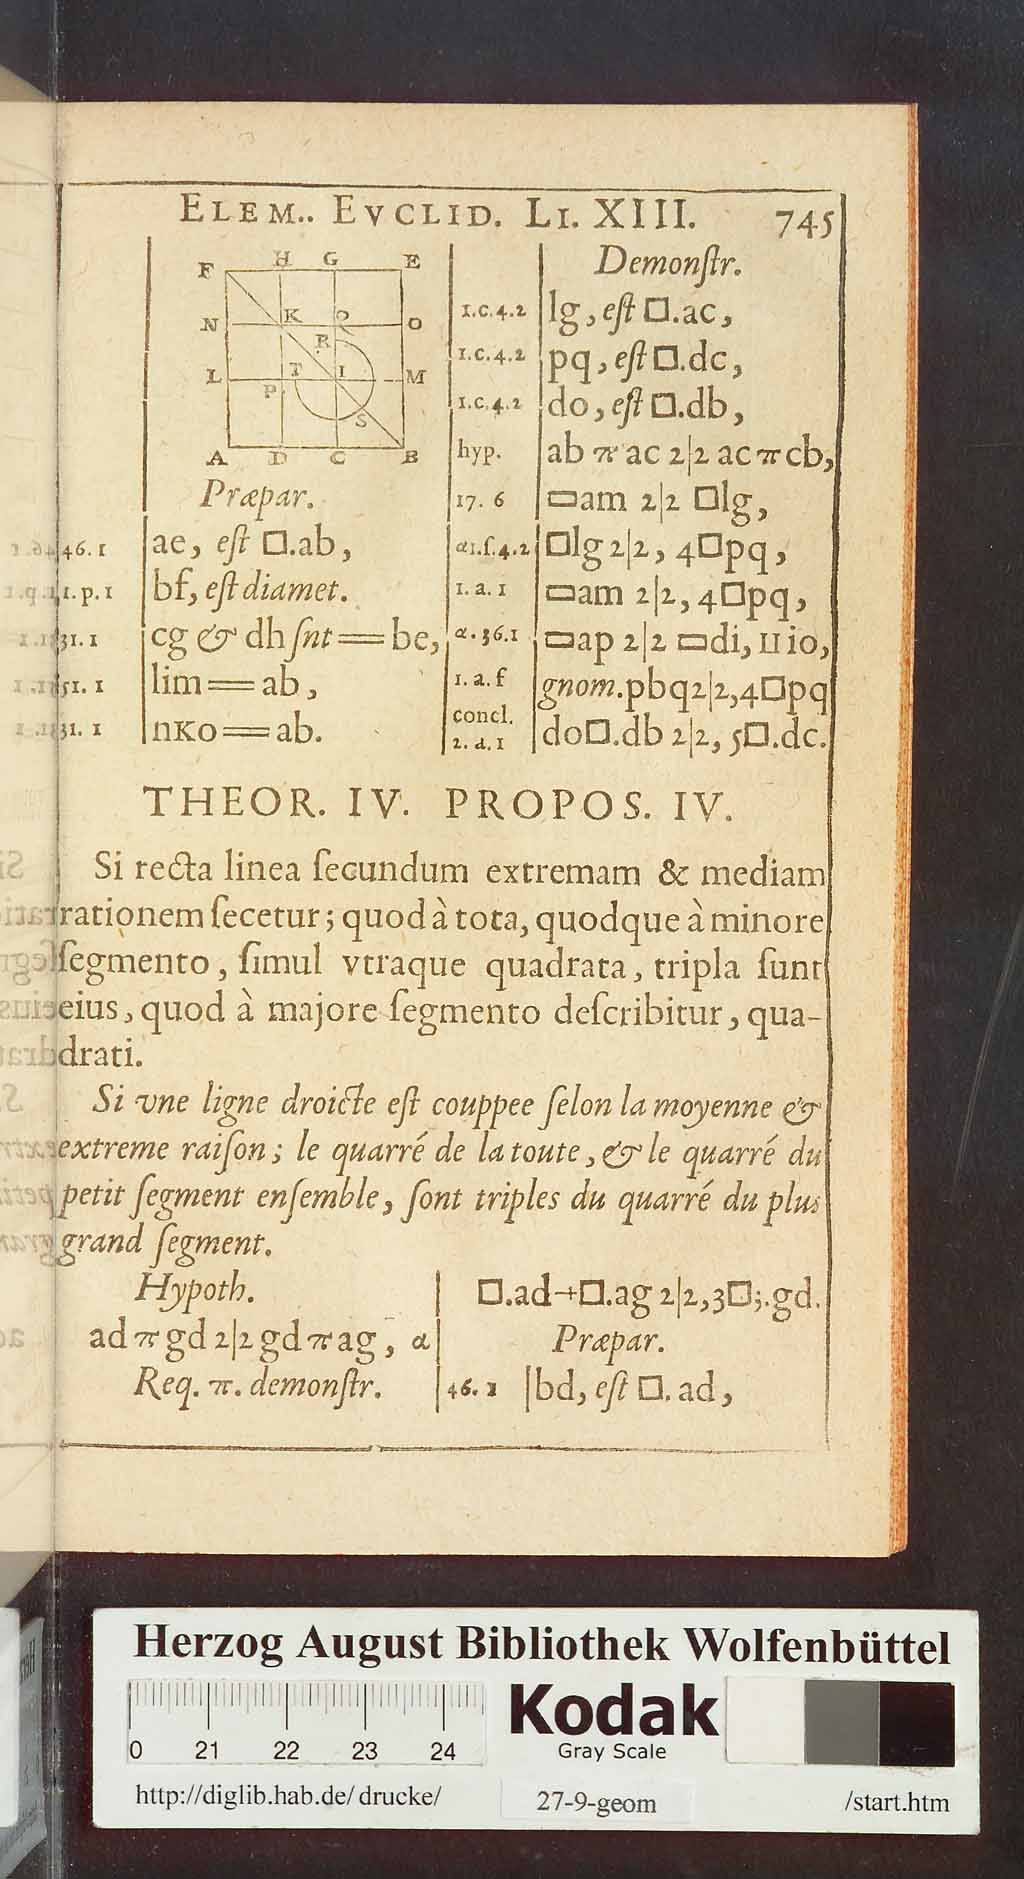 ELEM.. EVCLID. LI. XIII. 745
F H G E
N K Q O
R
L T I M
P
S
A D C B
Præpar.
46. 1 ae, est □.ab,
1. p. 1 bf, est diamet.
31. 1 cg & dh snt == be,
31. 1 lim == ab,
31. 1 nKo == ab.
Demonſtr.
1.c.4.2 lg, eſt □.ac,
1.c.4.2 pq, eſt □.dc,
1.c.4.2 do, eſt □.db,
hyp. ab π ac 2|2 ac π cb,
17. 6 ▭am 2|2 □lg,
α1.ſ.4.2 □lg 2|2, 4□pq,
1. a. 1 ▭am 2|2, 4□pq,
α. 36.1 ▭ap 2|2 ▭di, ⊔io,
1. a. f gnom.pbq2|2,4□pq
concl.
2. d. 1 do□.db 2|2, 5□.dc.
THEOR. IV. PROPOS. IV.
Si recta linea ſecundum extremam & mediam
rationem ſecetur; quod à tota, quodque à minore
ſegmento, ſimul vtraque quadrata, tripla ſunt
eius, quod à majore ſegmento deſcribitur, qua-
drati.
Si vne ligne droicte eſt couppee ſelon la moyenne &
extreme raiſon; le quarré de la toute, & le quarré du
petit ſegment enſemble, ſont triples du quarré du plus
grand ſegment.
Hypoth.
ad π gd 2|2 gd π ag, α
Req. π. demonſtr.
□.ad+□.ag 2|2,3□;.gd.
Præpar.
46. 1 bd, eſt □. ad,
Herzog August Bibliothek Wolfenbüttel
0 21 22 23 24
Kodak
Gray Scale
http://diglib.hab.de/drucke/ 27-9-geom /start.htm